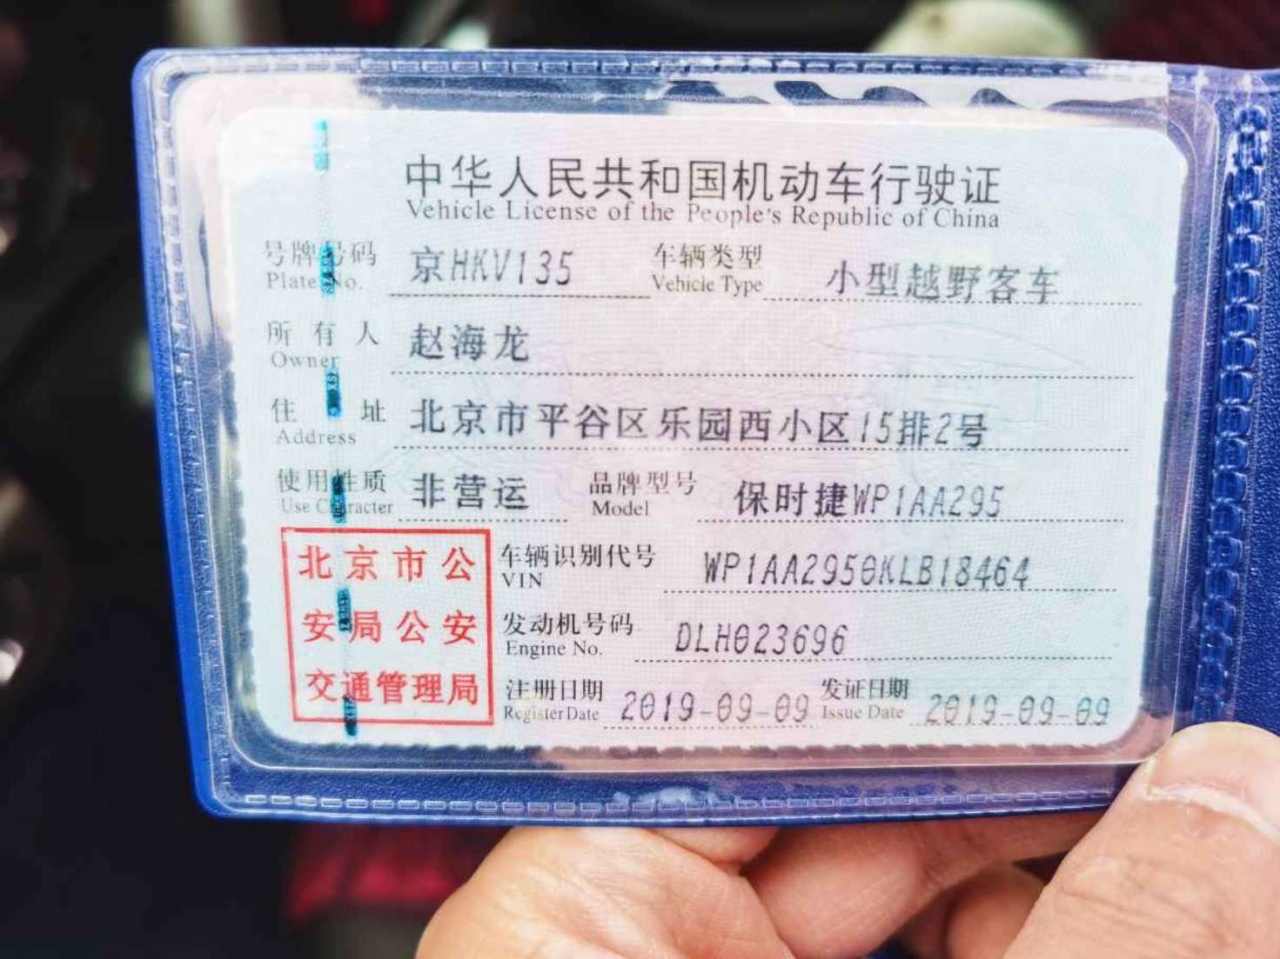 中华人民共和国机动车行驶证
Vehicle License of the People's Republic of China
号牌号码 京HKV135 车辆类型 小型越野客车
Plate No. Vehicle Type
所有人 赵海龙
Owner
住址 北京市平谷区乐园西小区15排2号
Address
使用性质 非营运 品牌型号 保时捷WP1AA295
Use Character Model
北京市公
安局公安
交通管理局
车辆识别代号 WP1AA2950KLB18464
VIN
发动机号码 DLH023696
Engine No.
注册日期 2019-09-09 发证日期 2019-09-09
Register Date Issue Date